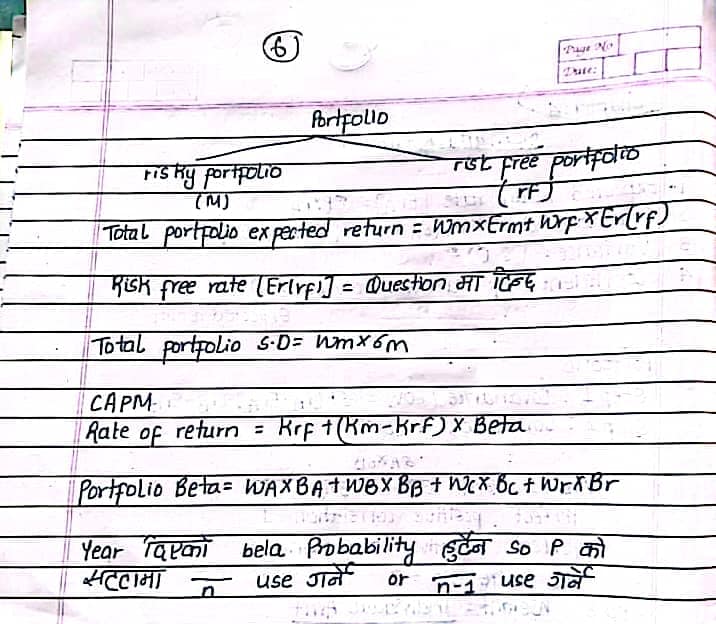 6
Page No
Date:
Portfolio
risky portfolio risk free portfolio
(M) (rF)
Total portfolio expected return = Wm×Erm+ Wrf × Er(rf)
Risk free rate [Er(rf)] = Question मा दिन्छ
Total portfolio S.D = Wm×σm
CAPM
Rate of return = Krf + (Km-Krf) × Beta
Portfolio Beta = WA×BA + WB×BB + Wc×Bc + Wr×Br
Year दिएको bela Probability हुदैन so P को
सट्टामा — n use गर्ने or — n-1 use गर्ने